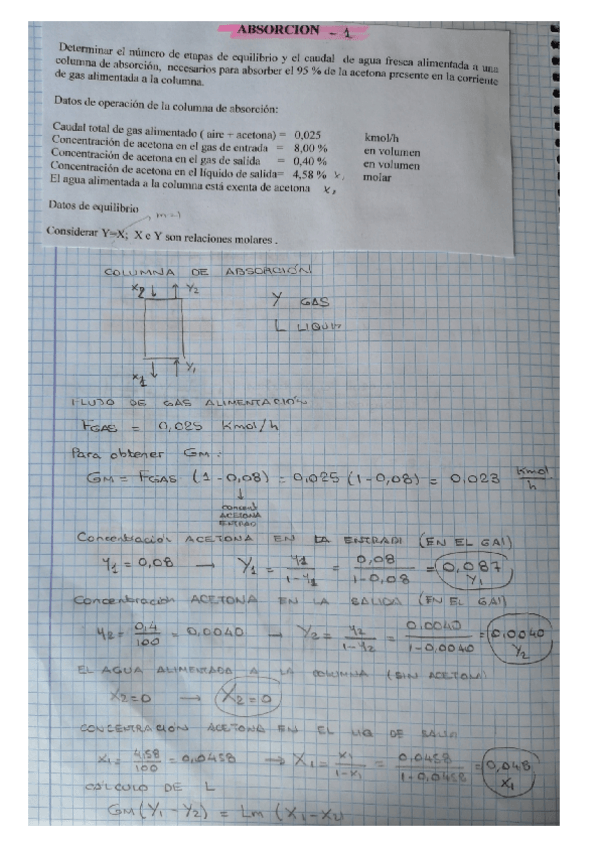 ABSORCION - 1
Determinar el número de etapas de equilibrio y el caudal de agua fresca alimentada a una
columna de absorción, necesarios para absorber el 95 % de la acetona presente en la corriente
de gas alimentada a la columna.
Datos de operación de la columna de absorción:
Caudal total de gas alimentado ( aire + acetona) = 0,025 kmol/h
Concentración de acetona en el gas de entrada = 8,00 % en volumen
Concentración de acetona en el gas de salida = 0,40 % en volumen
Concentración de acetona en el líquido de salida= 4,58 % x₁ molar
El agua alimentada a la columna está exenta de acetona x₂
Datos de equilibrio
m=1
Considerar Y=X; X e Y son relaciones molares .
COLUMNA DE ABSORCIÓN
X2 ↓ ↑ Y2
Y GAS
L LIQUID
X1 ↓ ↑ Y1
FLUJO DE GAS ALIMENTACIÓN
FGAS = 0,025 Kmol/h
Para obtener GM:
GM = FGAS (1 - 0,08) = 0,025 (1-0,08) = 0,023 Kmol/h
↓
ACETONA
Concentración ACETONA EN LA ENTRADA (EN EL GAS)
y1 = 0,08 → Y1 = y1/1-y1 = 0,08/1-0,08 = 0,087 Y1
Concentración ACETONA EN LA SALIDA (EN EL GAS)
y2 = 0,4/100 = 0,0040 → Y2 = y2/1-y2 = 0,0040/1-0,0040 = 0,0040 Y2
EL AGUA ALIMENTADA A LA COLUMNA (SIN ACETONA)
x2=0 → X2=0
CONCENTRACIÓN ACETONA EN EL LIQ DE SALIDA
x1 = 4,58/100 = 0,0458 → X1 = x1/1-x1 = 0,0458/1-0,0458 = 0,048 X1
CÁLCULO DE L
GM (Y1 - Y2) = Lm (X1 - X2)